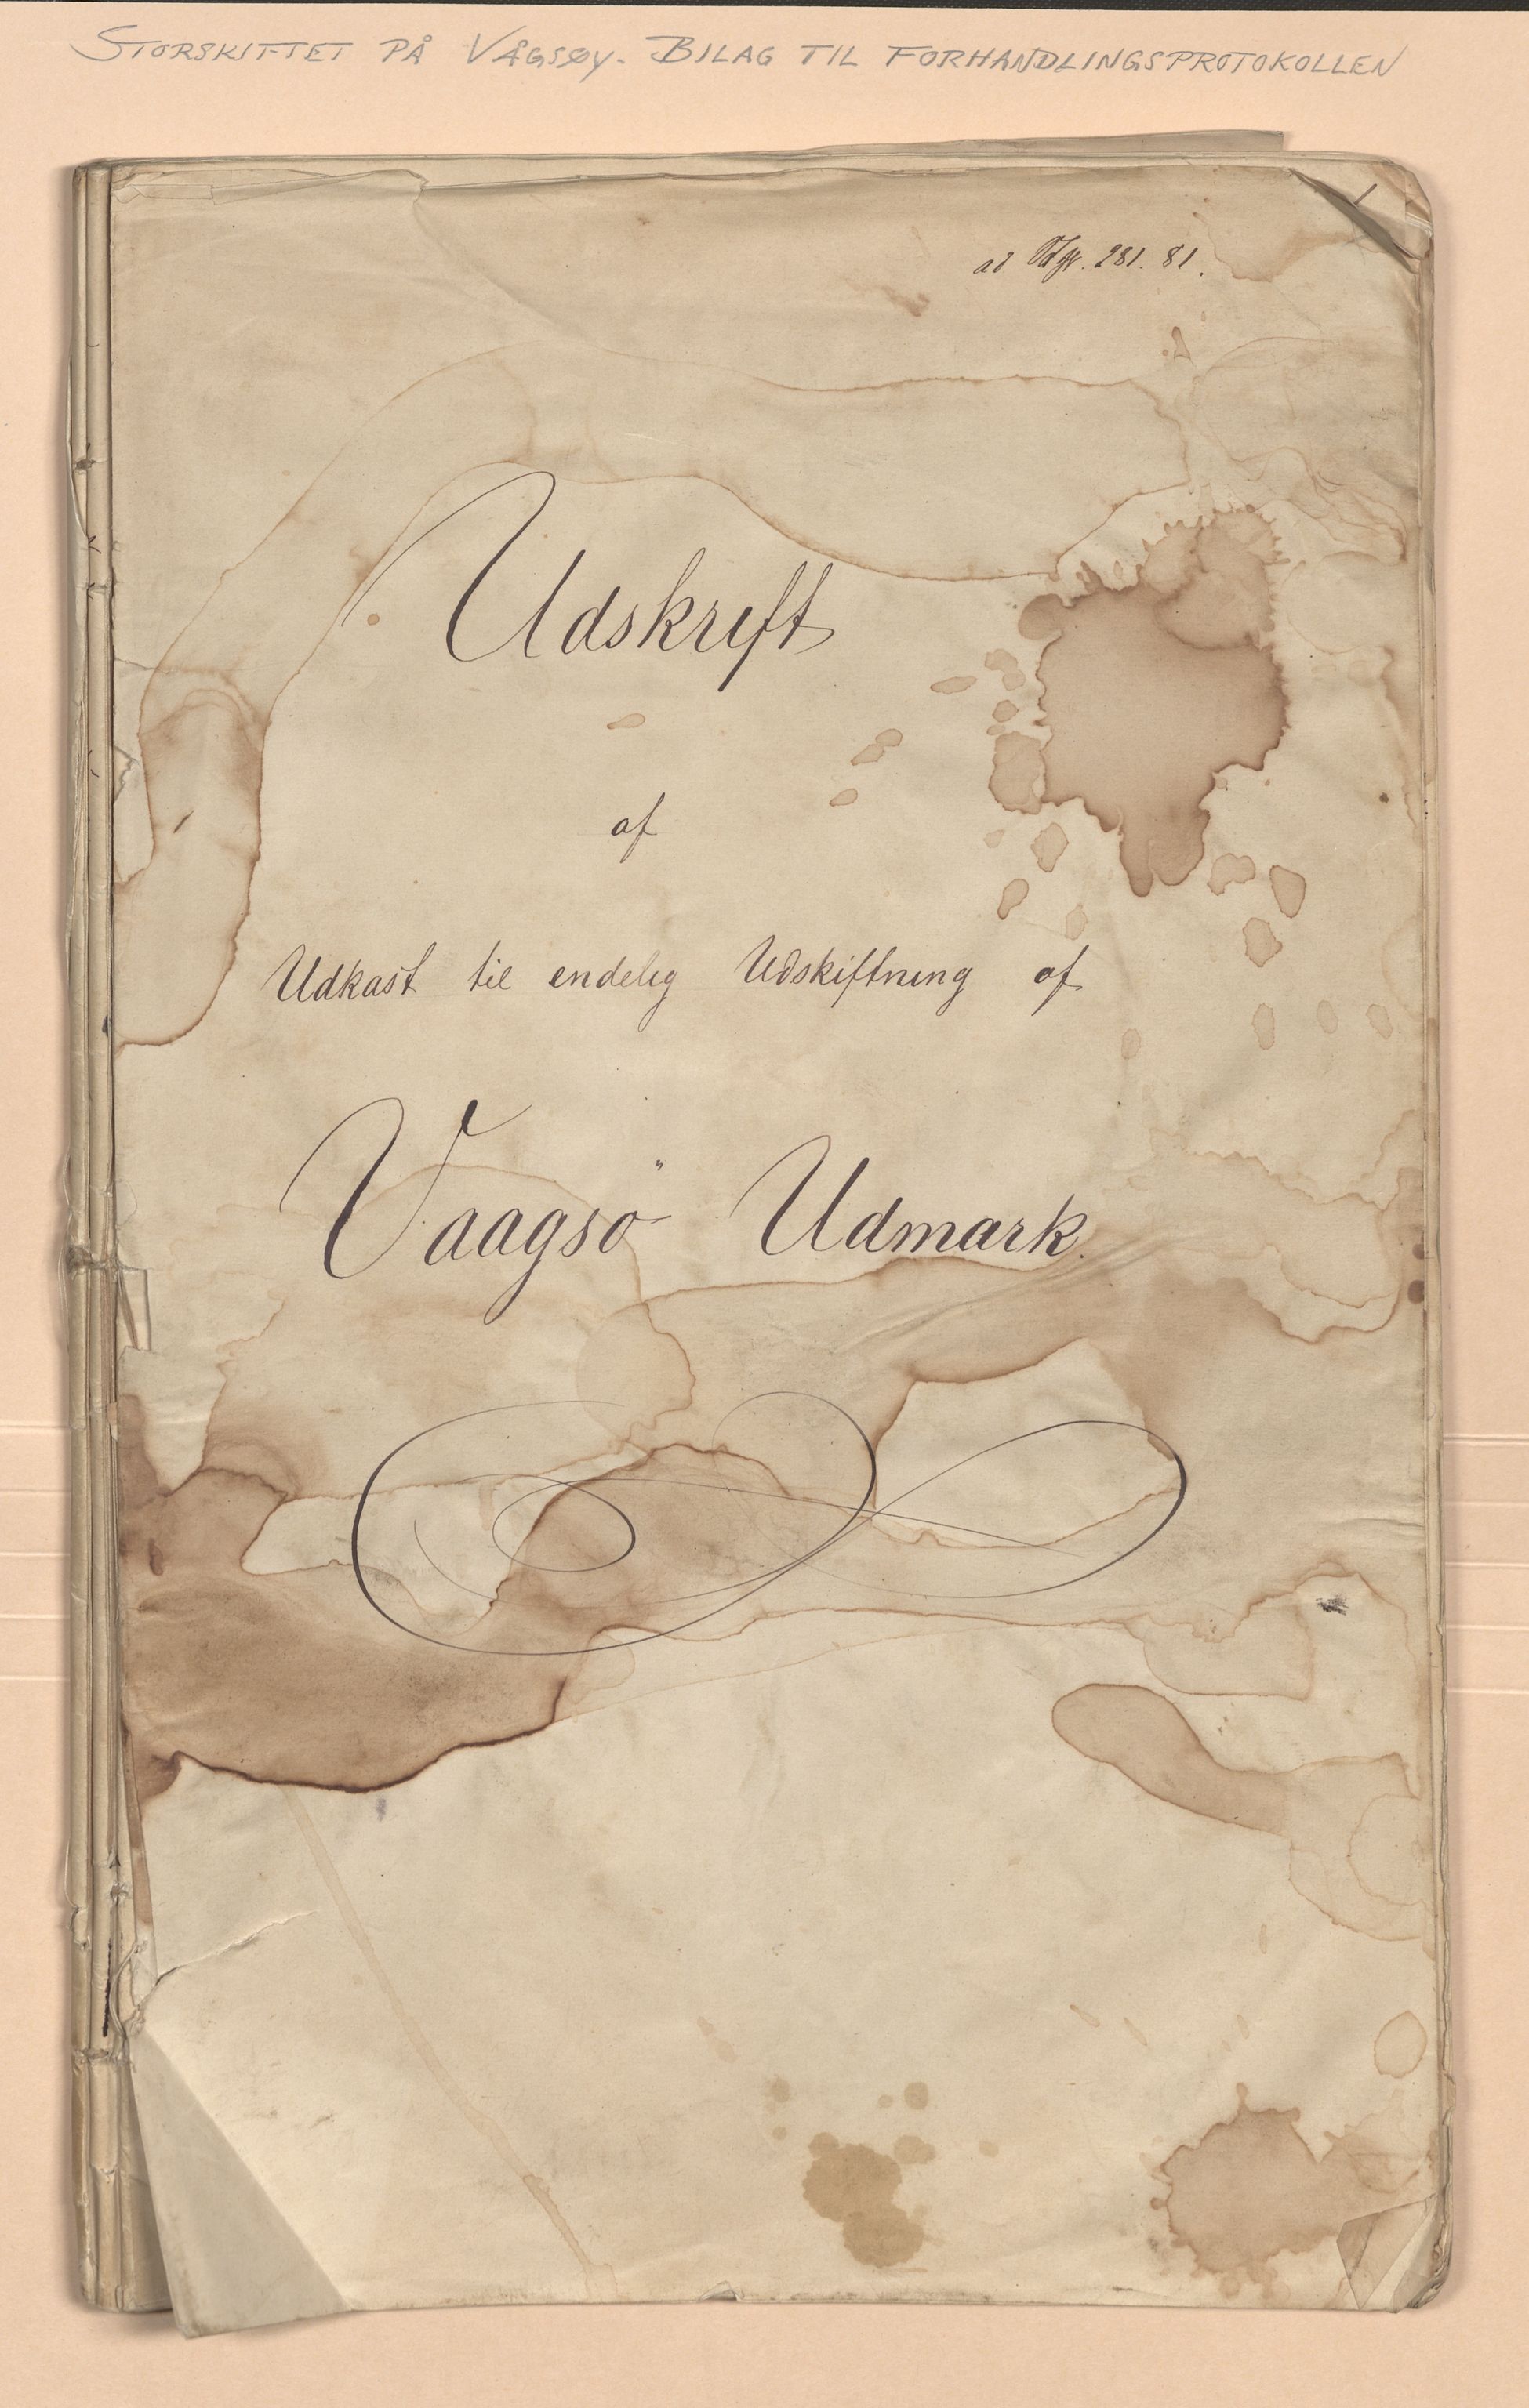 STORSKIFTET PÅ VÅGSØY. BILAG TIL FORHANDLINGSPROTOKOLLEN
1
ad 281. 81.
Udskrift
af
Udkast til endelig Udskiftning af
Vaagsö Udmark.